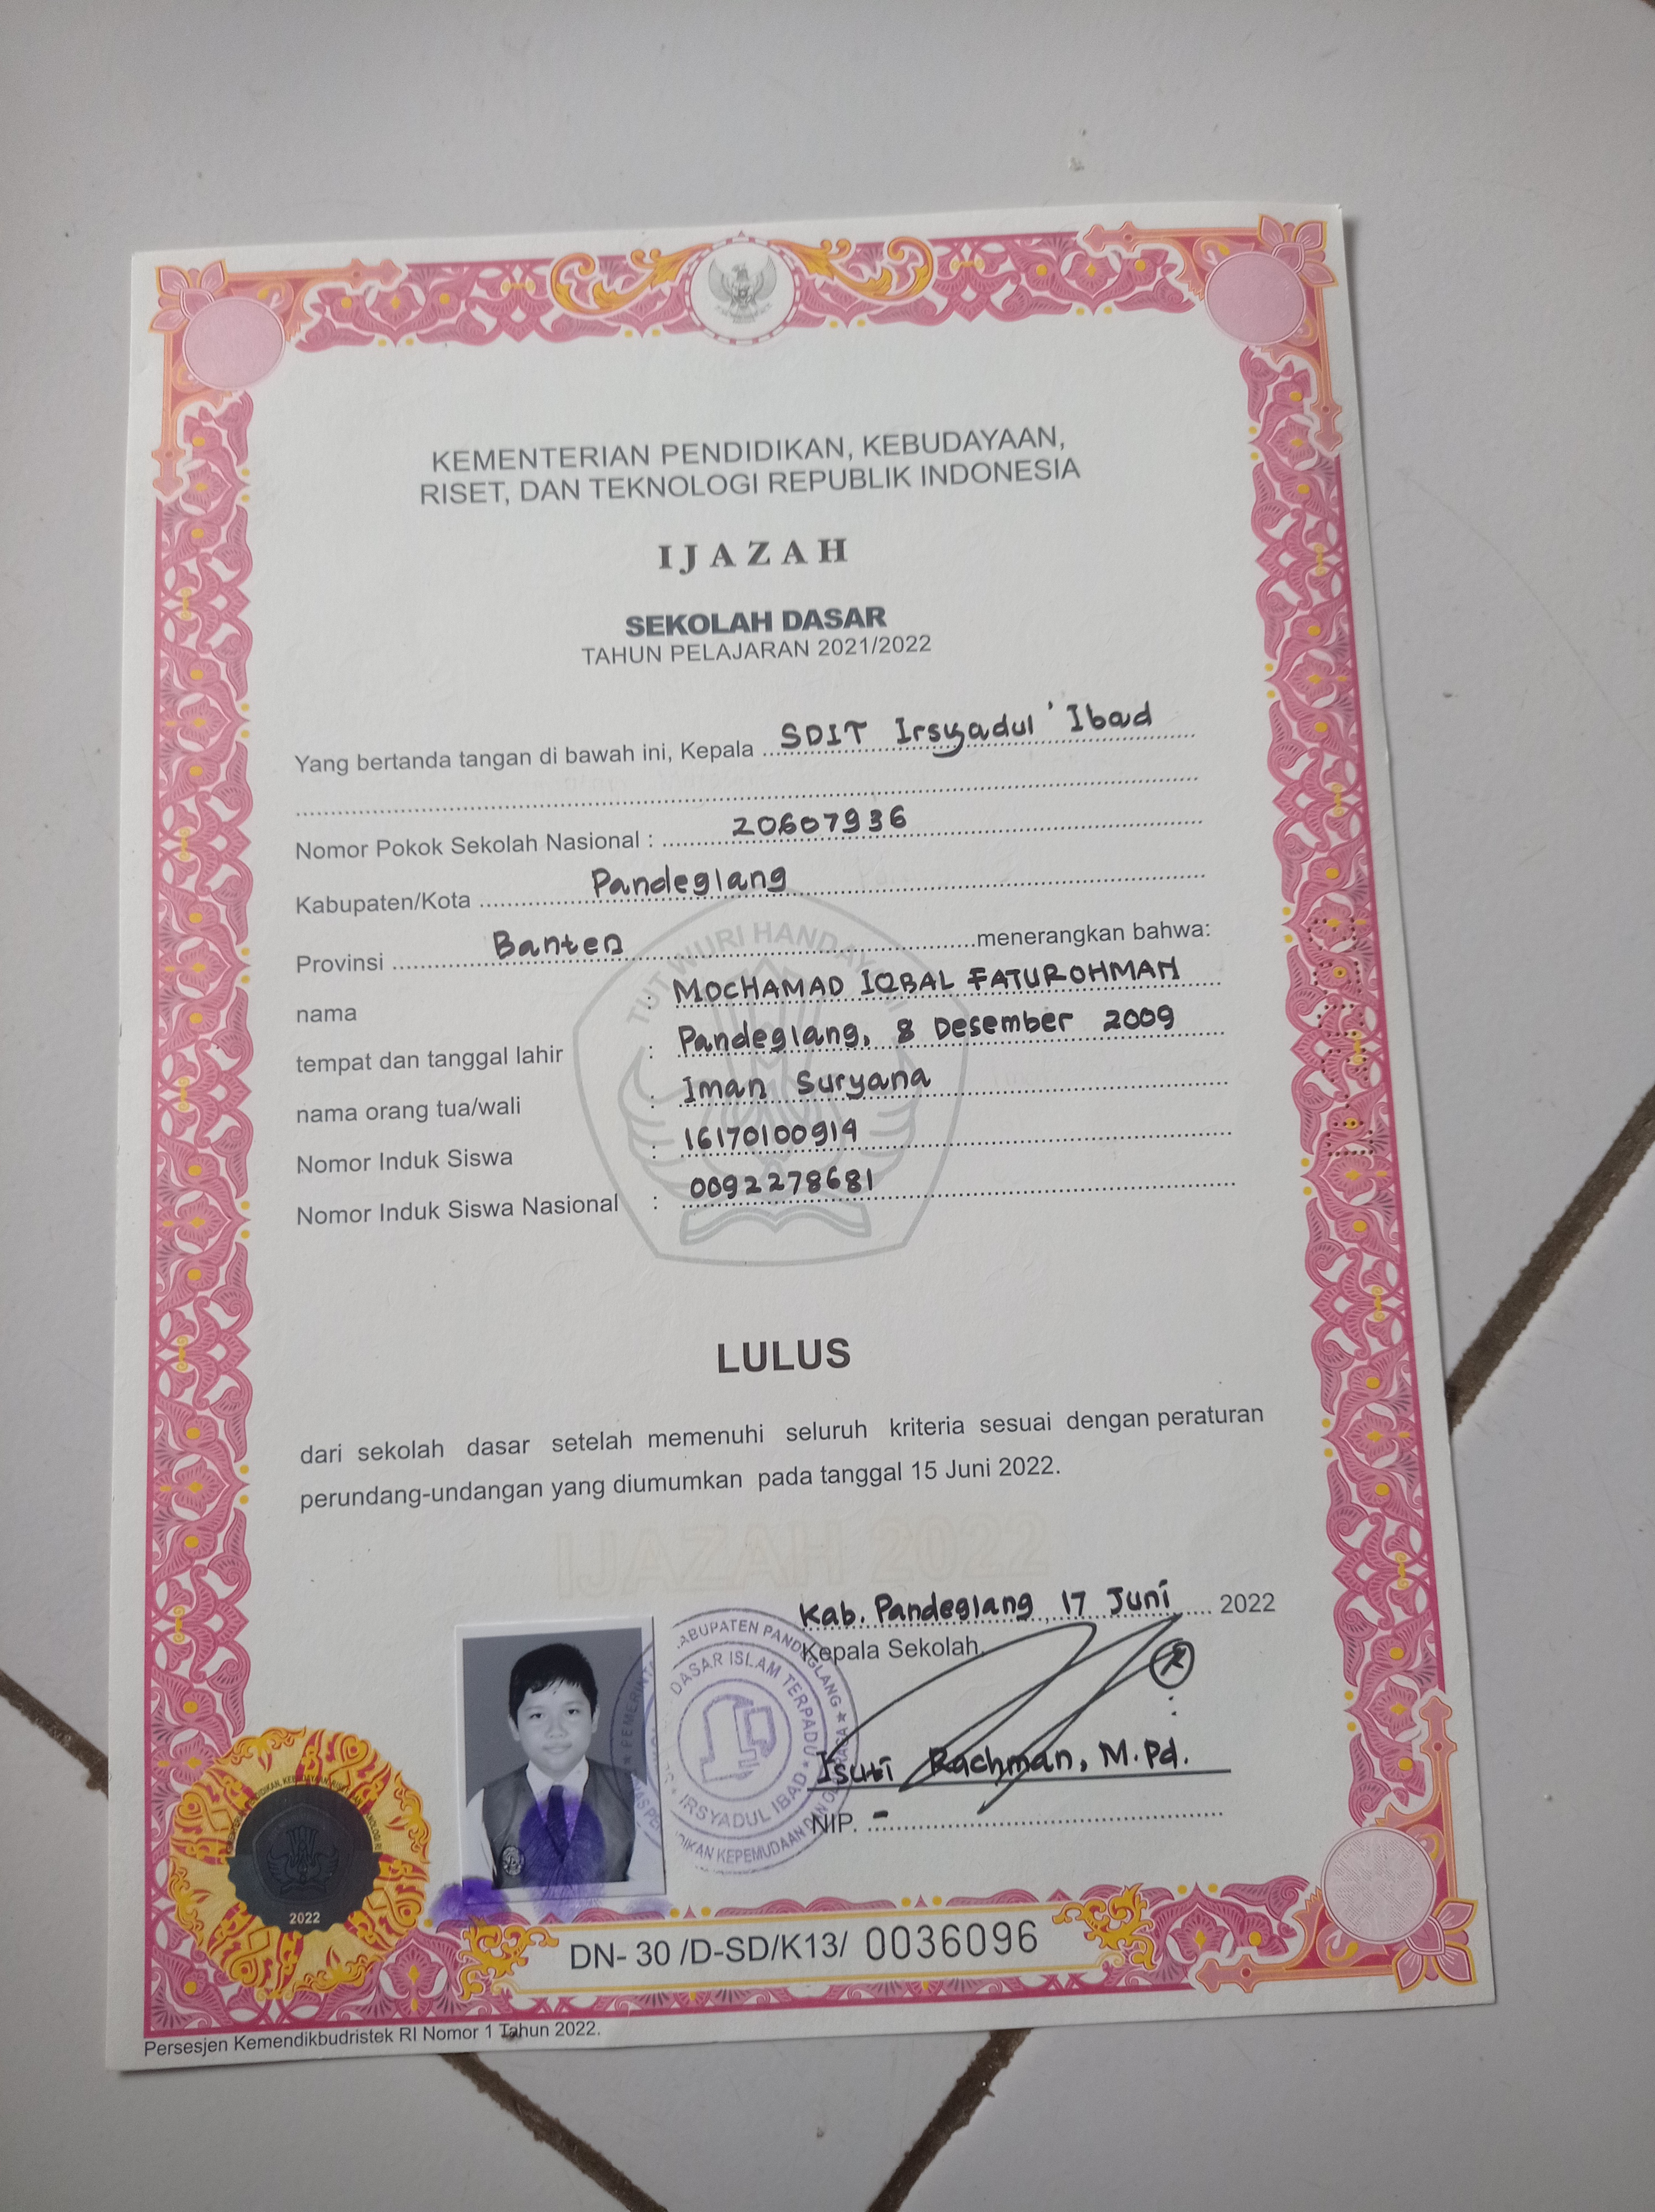 KEMENTERIAN PENDIDIKAN, KEBUDAYAAN,
RISET, DAN TEKNOLOGI REPUBLIK INDONESIA
IJAZAH
SEKOLAH DASAR
TAHUN PELAJARAN 2021/2022
Yang bertanda tangan di bawah ini, Kepala SDIT Irsyadul 'Ibad
Nomor Pokok Sekolah Nasional : 20607936
Kabupaten/Kota Pandeglang
Provinsi Banten menerangkan bahwa:
nama : MOCHAMAD IQBAL FATUROHMAN
tempat dan tanggal lahir : Pandeglang, 8 Desember 2009
nama orang tua/wali : Iman Suryana
Nomor Induk Siswa : 16170100914
Nomor Induk Siswa Nasional : 0092278681
TUT WURI HANDAYANI
LULUS
dari sekolah dasar setelah memenuhi seluruh kriteria sesuai dengan peraturan
perundang-undangan yang diumumkan pada tanggal 15 Juni 2022.
IJAZAH 2022
Kab. Pandeglang, 17 Juni 2022
Kepala Sekolah,
KABUPATEN PANDEGLANG
DASAR ISLAM TERPADU
IRSYADUL IBAD
DAN OLAHRAGA
Rachman, M.Pd.
NIP. -
2022
DN- 30 /D-SD/K13/ 0036096
Persesjen Kemendikbudristek RI Nomor 1 Tahun 2022.